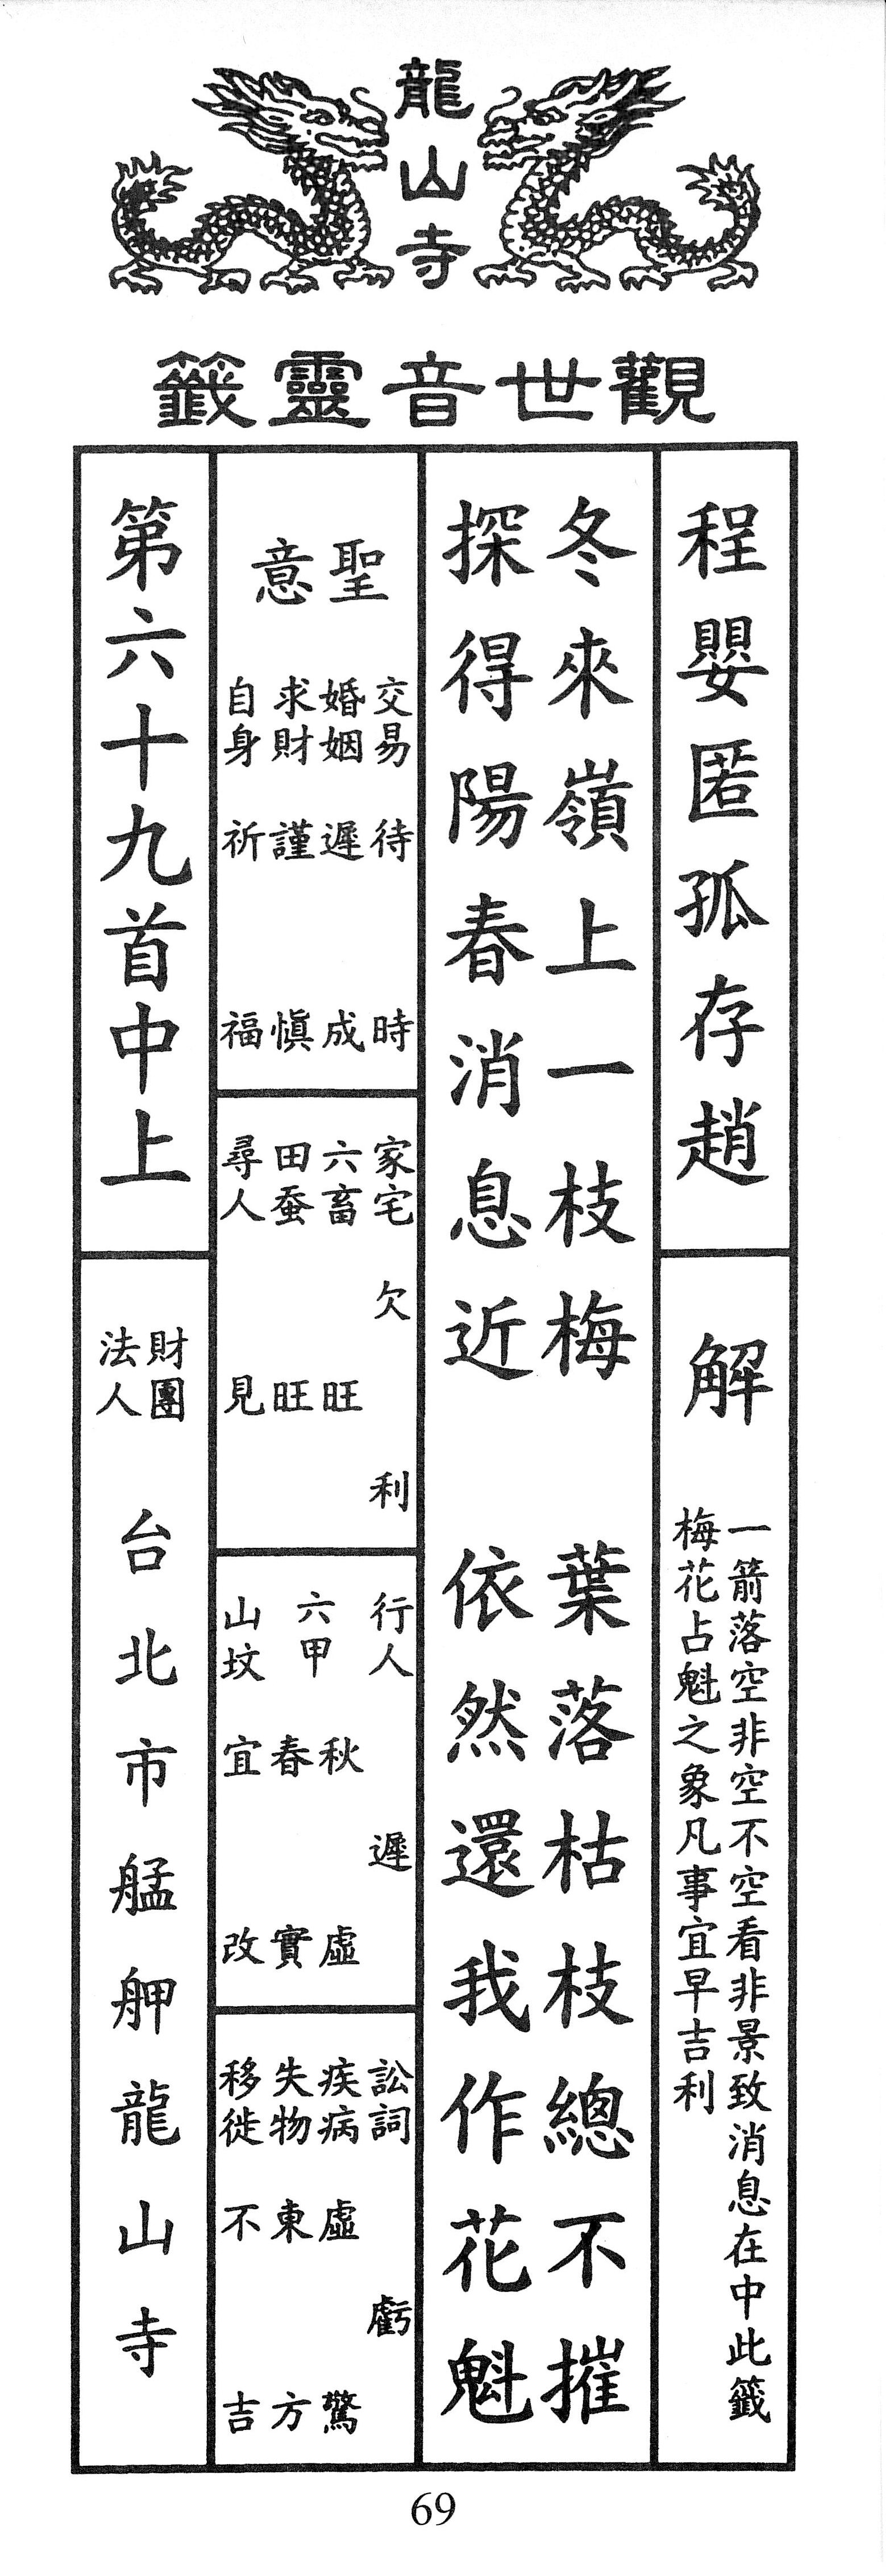 龍山寺
觀世音靈籤
程嬰匿孤存趙
解
一箭落空非空不空看非景致消息在中此籤
梅花占魁之象凡事宜早吉利
冬來嶺上一枝梅 葉落枯枝總不摧
探得陽春消息近 依然還我作花魁
聖意
交易待時
婚姻遲成
求財謹慎
自身祈福
家宅欠利
六畜旺
田蚕旺
尋人見
行人遲
六甲秋虛春實
山坟宜改
訟詞虧
疾病虛驚
失物東方
移徙不吉
第六十九首中上
財團法人
台北市艋舺龍山寺
69